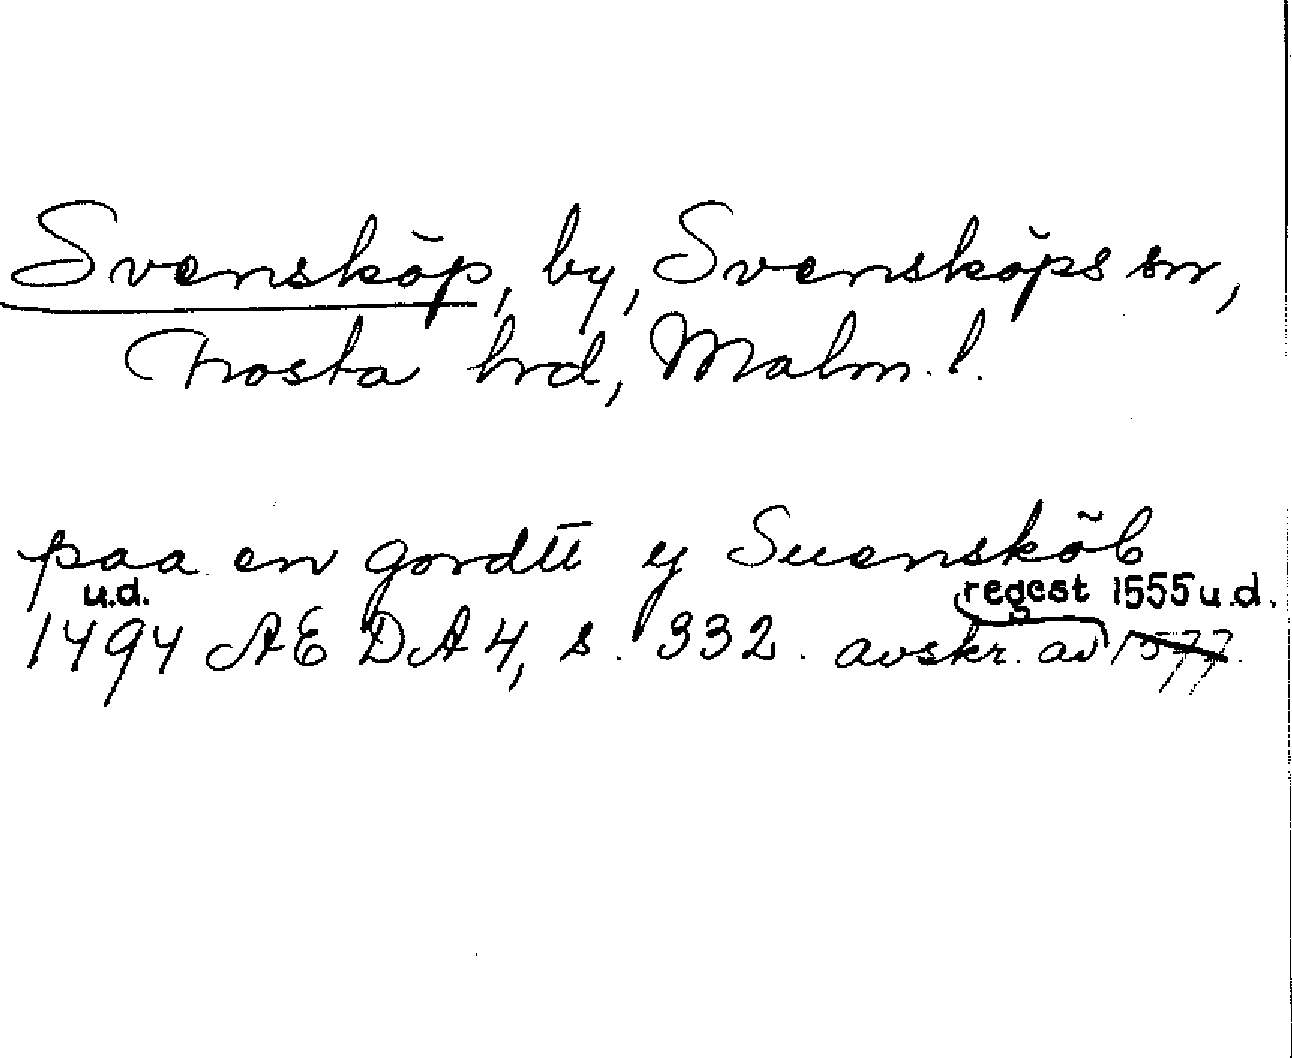 Svensköp, by, Svensköps sn,
Frosta hrd, Malm. l.
paa en gordtt y Suensköb
u.d. regest 1555 u.d.
1494 AEDA 4, s. 332. avskr. av 1577.